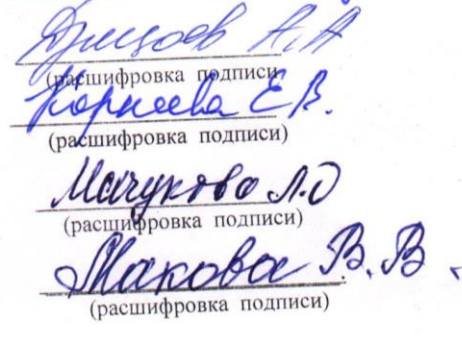 А.А
(расшифровка подписи
Корнеева Е.В.
(расшифровка подписи)
Мачукова Л.О
(расшифровка подписи)
Макова В.В.
(расшифровка подписи)